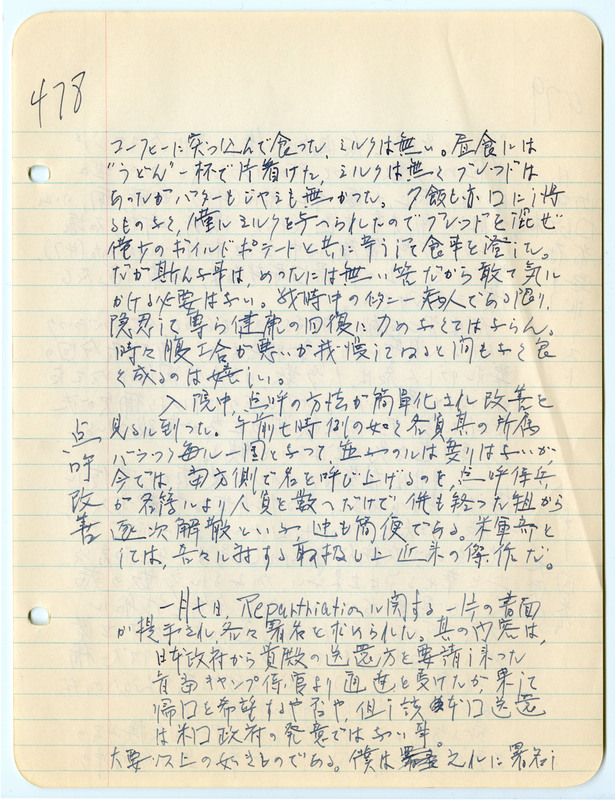 478
コーヒーに突っ込んで食った、ミルクは無い。昼食には
"うどん"一杯で片着けた、ミルクは無くブレッドは
あったがバターもジャミも無かった。夕飯も亦口にi
るものなく、僅ルミルクを与へられたのでブレッドを混ぜ
僅少のボイルドポテートと共に辛うiて食事を澄iた。
だが斯んな事は、めったには無い筈だから敢て気ル
かける必要はない。戦時中の一病人である限り、
隠忍iて専ら健康の回復に力めなくてはならん。
時々腹工合が悪いが我慢iてねると間もなく良
く成るのは嬉iい。
入院中、点呼の方法が簡単化され改善を
点呼改善
見るル到った。午前七時例の如く各員其の所属
バラック毎ル一団となって、並ぶのルは変りはないが
今では、当方側で名を呼び上げるのを、点呼係兵
が名簿ルより人員を数へだけで、何も経った組から
逐次解散といふ、迚も簡便である。米軍部と
iては、吾々ル対する取扱i上近来の傑作だ。
一月七日、Repatriationル関する一片の書面
が提手され、各々署名を求められた。其の内容は、
日本政府から貴殿の送還方を要請i来った
旨当キャンプ係官より通達を受けたが、果iて
帰口を希望するや否や、但i該本口送還
は米口政府の発意ではない事。
大要以上の如きものである。僕は之れに署名i